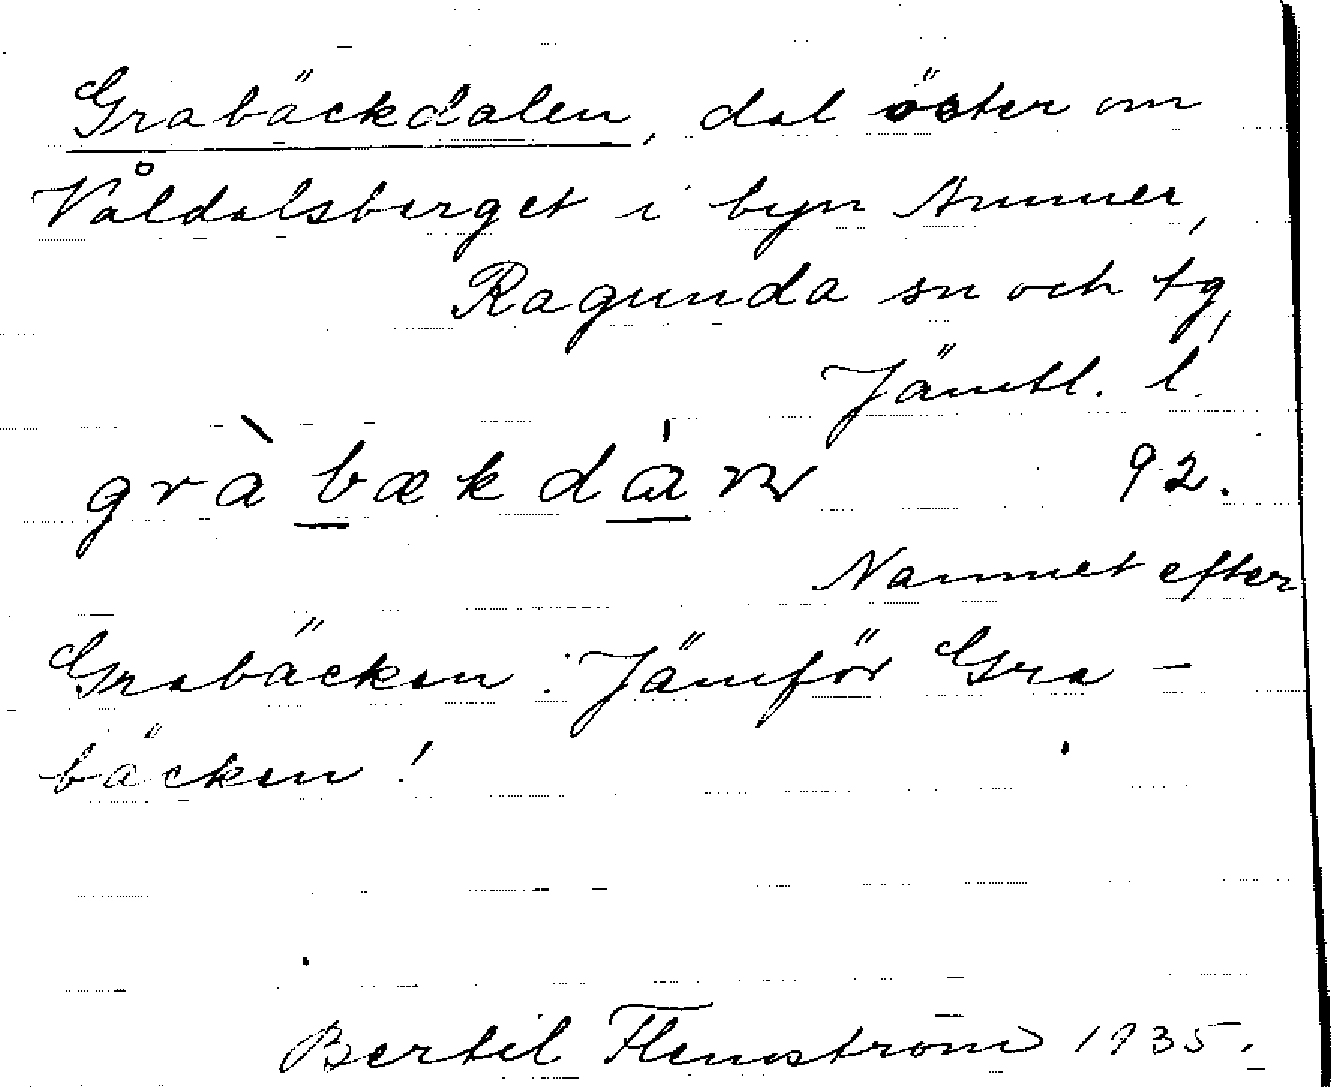 Grabäckdalen, dal öster om
Våldalsberget i byn Ammer,
Ragunda sn och tg,
Jämtl. l.
gràbækdán 92.
Namnet efter
Grabäcken. Jämför Gra-
bäcken!
Bertil Flemström 1935.